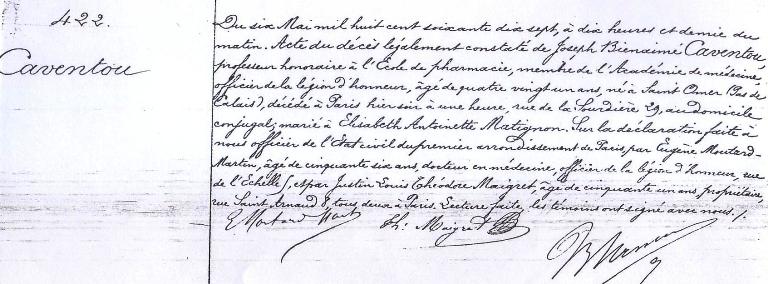 422.
Caventou
Du six Mai mil huit cent soixante dix sept, à dix heures et demie du
matin. Acte du décès légalement constaté de Joseph Bienaimé Caventou,
professeur honoraire à l'École de pharmacie, membre de l'Académie de médecine,
officier de la légion d'honneur, âgé de quatre vingt un ans, né à Saint Omer (Pas de
Calais), décédé à Paris hier soir à une heure, rue de la Sourdière 29, au domicile
conjugal; marié à Elisabeth Antoinette Matignon. Sur la déclaration faite à
nous officier de l'Etat civil du premier arrondissement de Paris, par Eugène Moutard-
Martin, âgé de cinquante six ans, docteur en médecine, officier de la légion d'honneur, rue
de l'Echelle, et par Justin Louis Théodore Maigret, âge de cinquante un ans, propriétaire,
rue Saint Arnaud 8, tous deux à Paris. Lecture faite, les témoins ont signé avec nous./.
E Moutard Mart
Th: Maigret